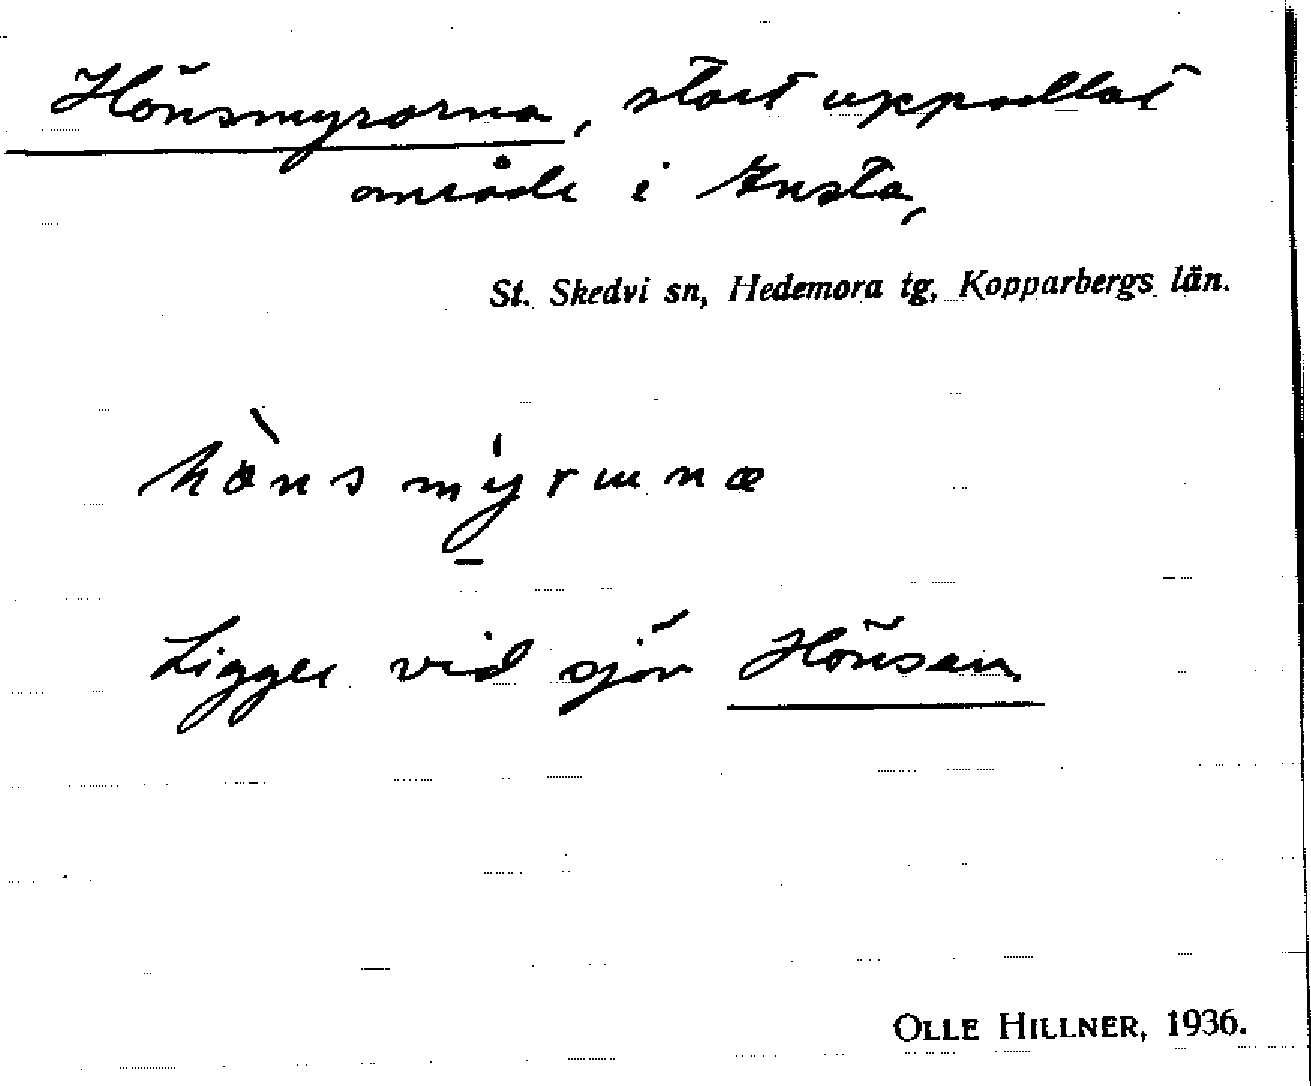 Hönsmyrorna, stort uppodlat
område i Knsta,
St. Skedvi sn, Hedemora tg, Kopparbergs län.
hòns myrɯnæ
Ligger vid sjön Hönsen
OLLE HILLNER, 1936.